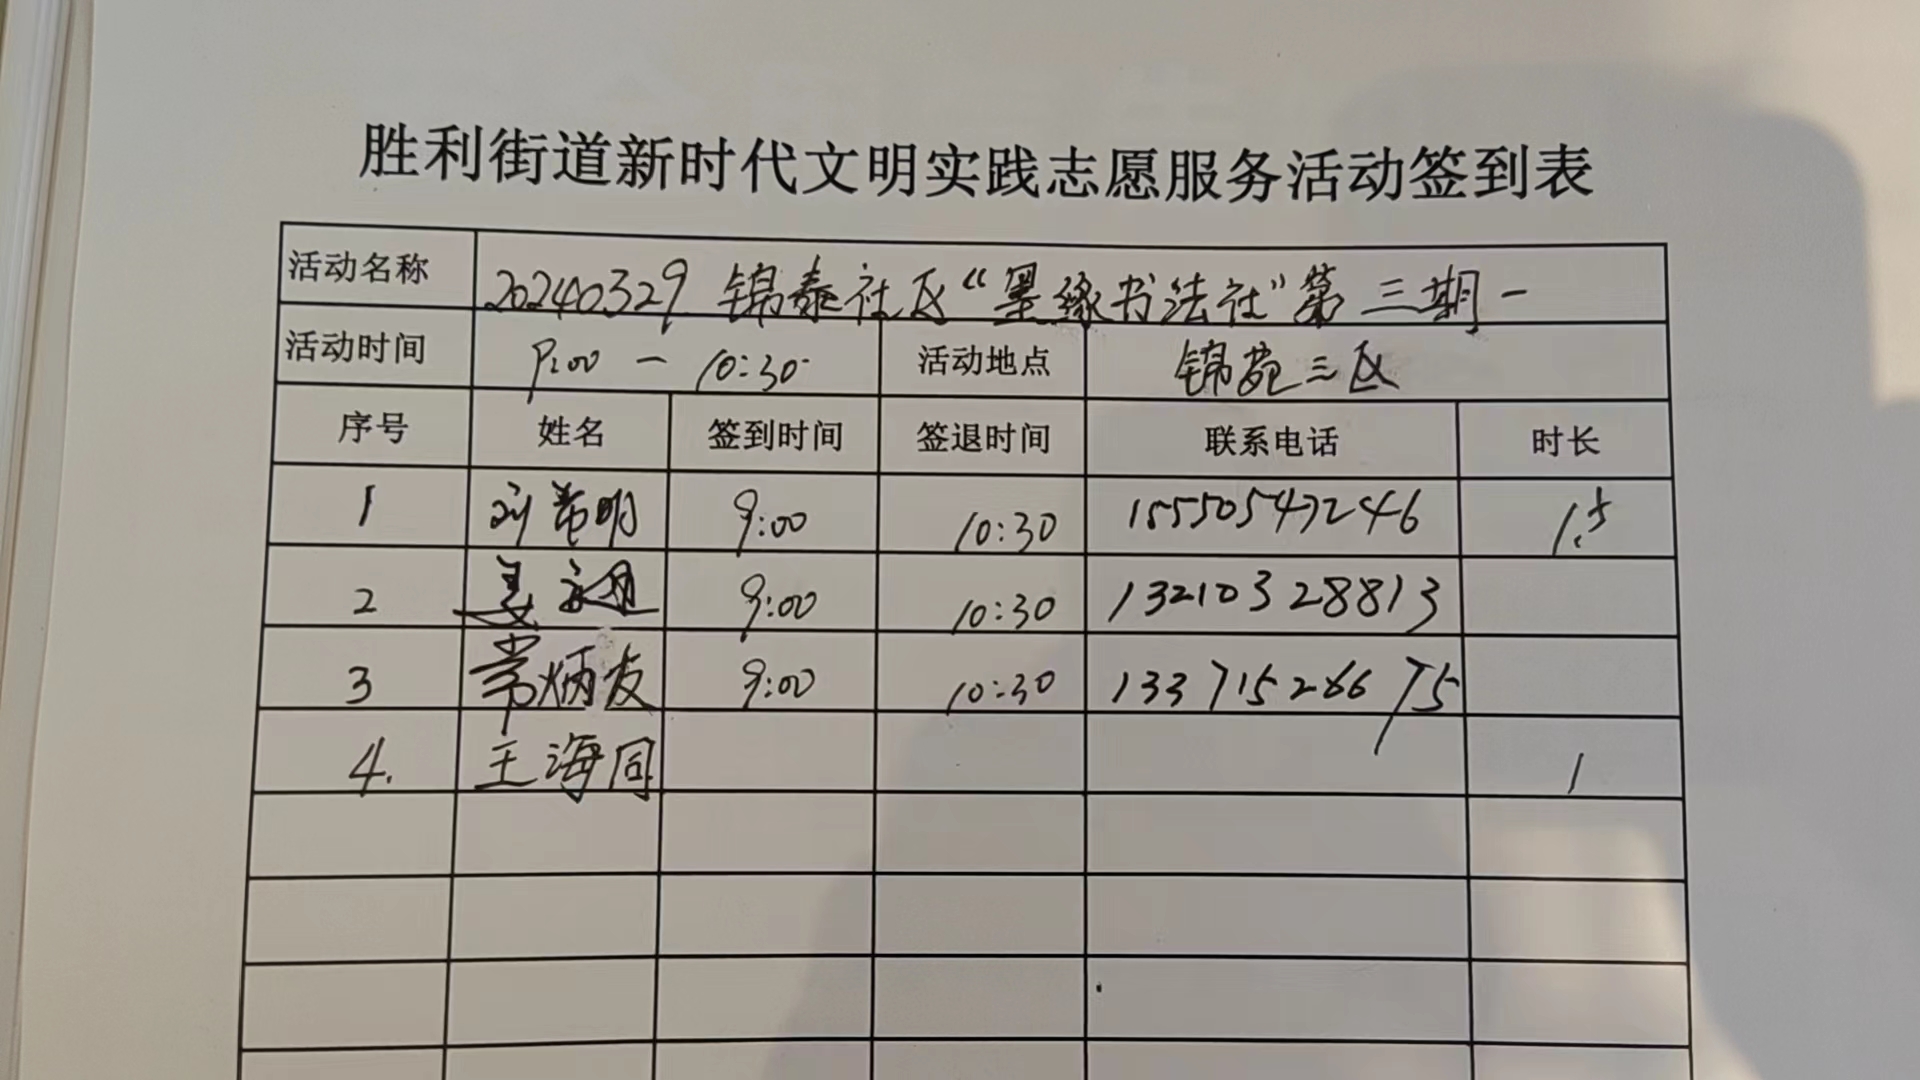 胜利街道新时代文明实践志愿服务活动签到表
活动名称 20240329 锦泰社区“墨缘书法社”第三期一
活动时间 9:00 — 10:30 活动地点 锦苑三区
序号 姓名 签到时间 签退时间 联系电话 时长
1 刘希明 9:00 10:30 15550547246 1.5
2 姜 9:00 10:30 13210328813
3 常炳发 9:00 10:30 13371526675
4. 王海同 1